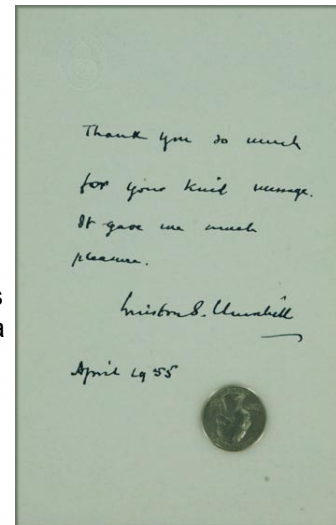 Thank you so much
for your kind message.
It gave me much
pleasure.
Winston S. Churchill
April 1955
s
a